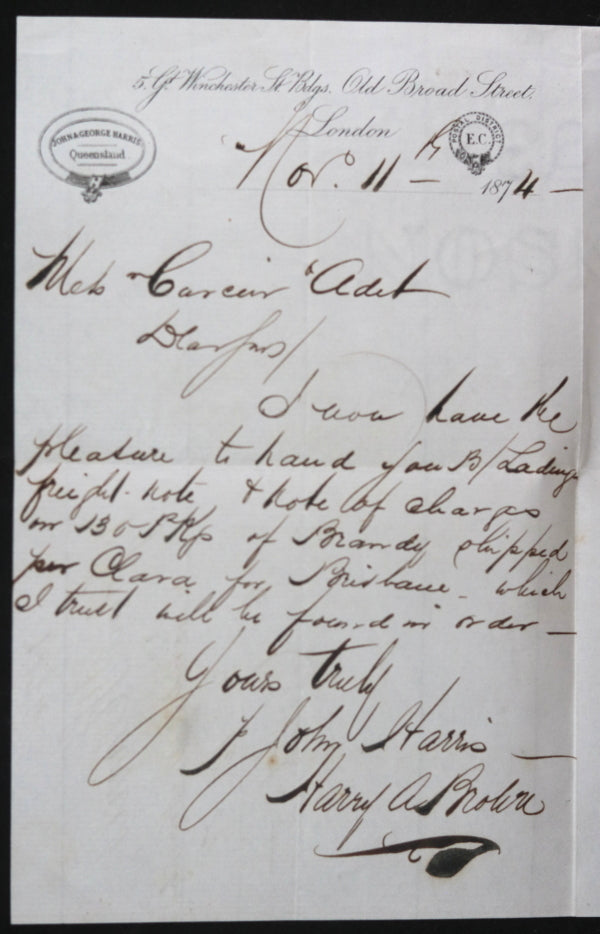 5, Gt. Winchester St. Bdgs. Old Broad Street,
London
JOHN & GEORGE HARRIS
Queensland
POSTAL DISTRICT
E.C.
Nov. 11th 1874
Adet
Dear Sirs/
I now have the
pleasure to hand you B/Lading
freight note & note of charges
on 130 Pkgs of Brandy shipped
per Clara for Brisbane - which
I trust will be found in order -
Yours truly
p John Harris
Harry A Brown